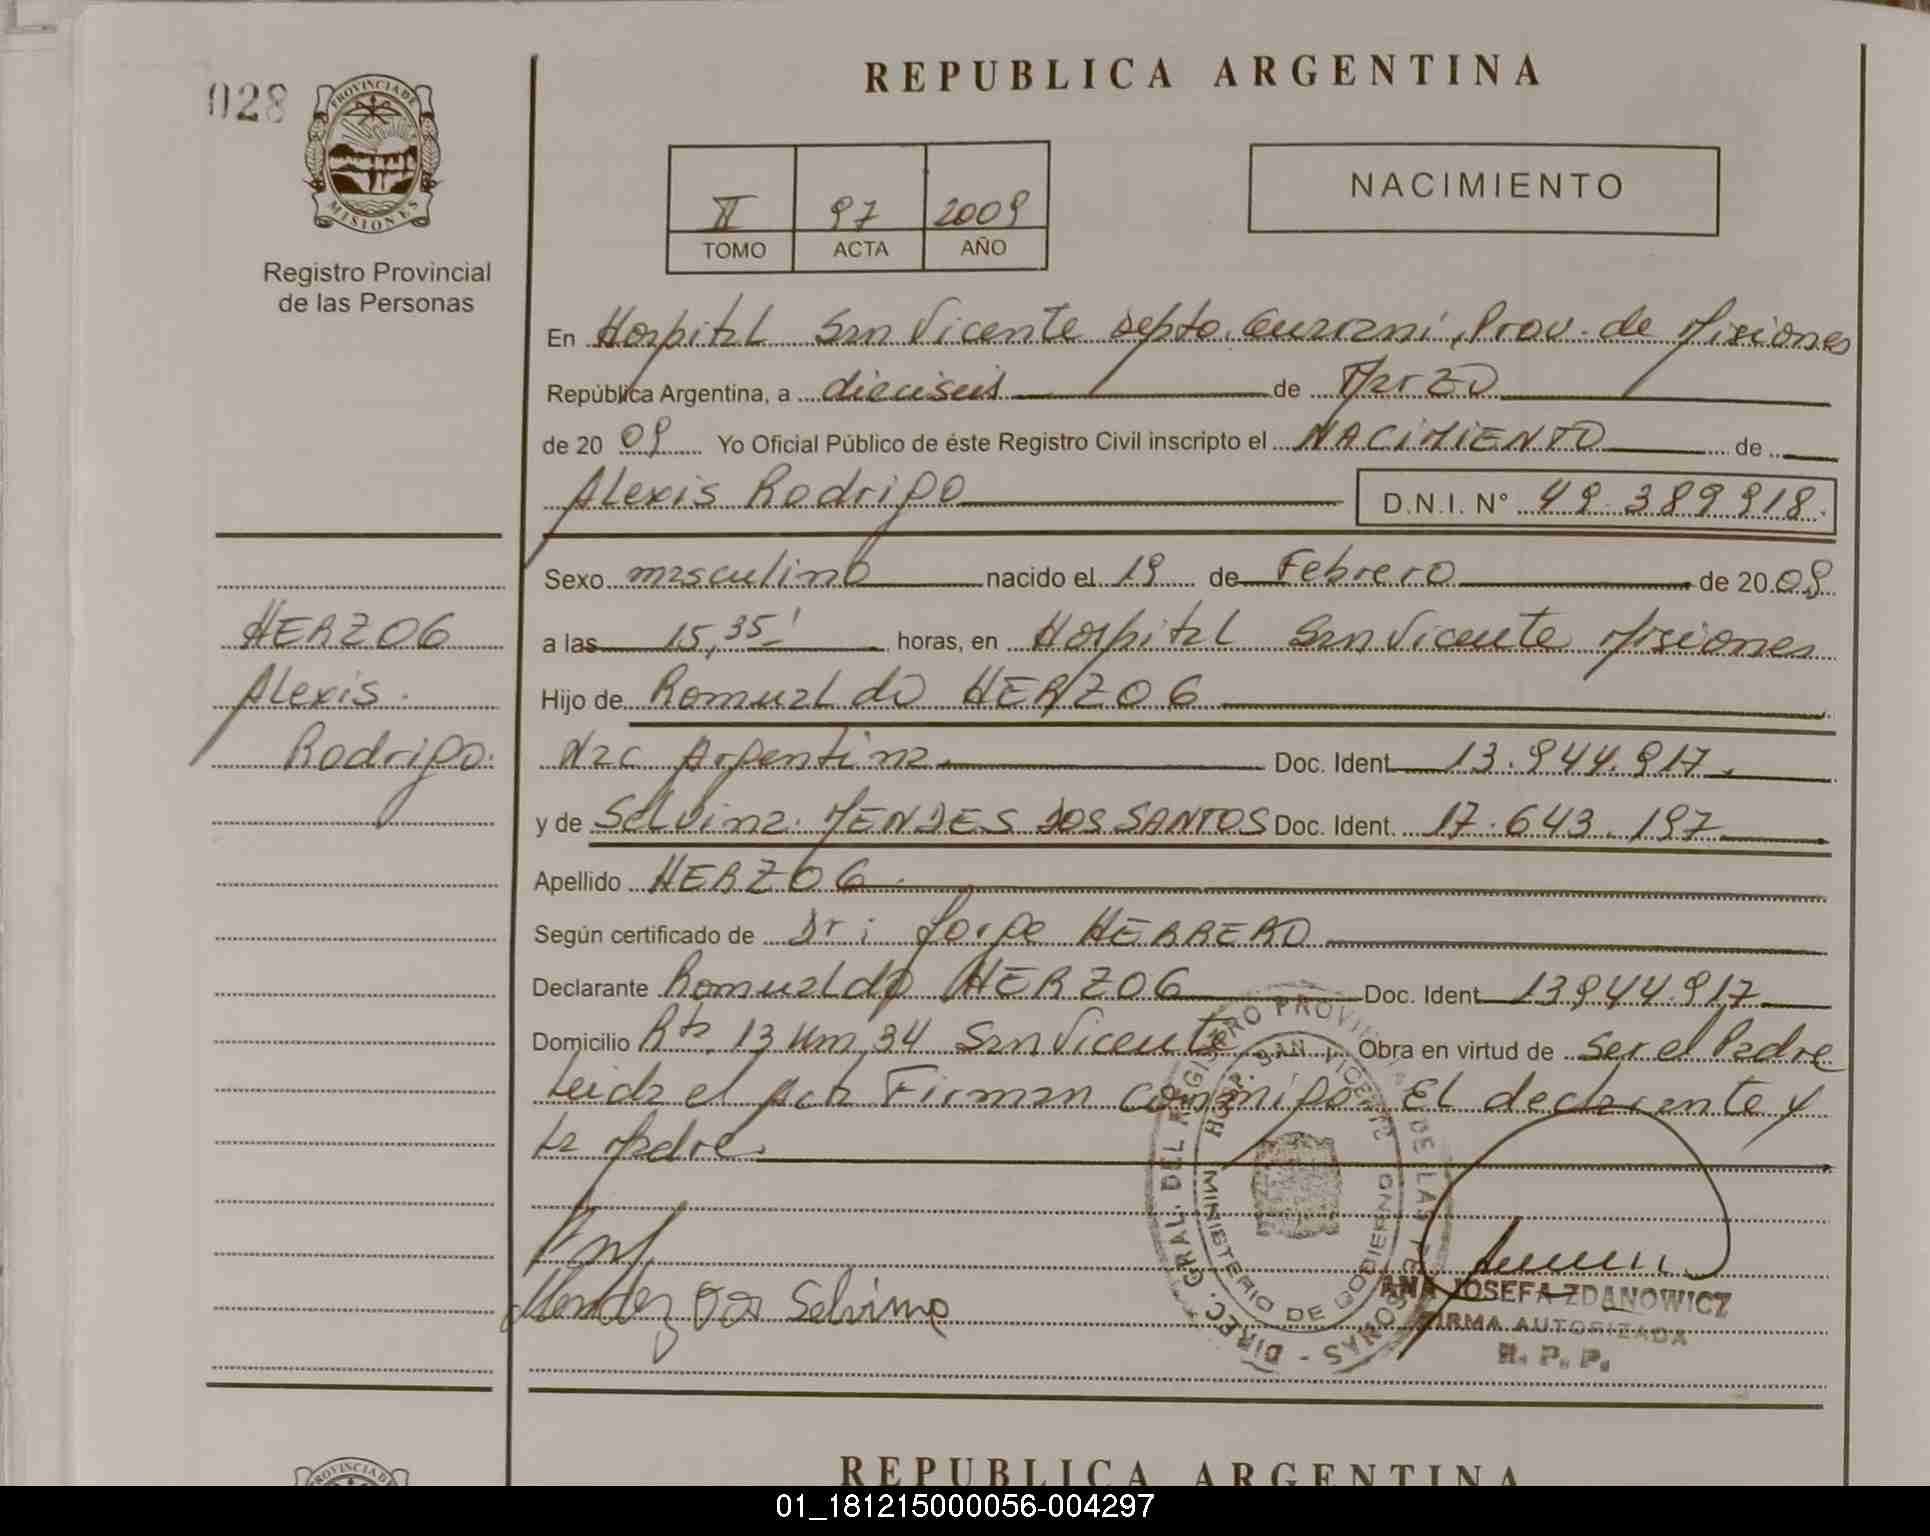 028
PROVINCIA DE
MISIONES
Registro Provincial
de las Personas
REPUBLICA ARGENTINA
II 97 2009
TOMO ACTA AÑO
NACIMIENTO
En Hospital San Vicente Depto. Guarani, Prov. de Misiones
República Argentina, a dieciseis de Marzo
de 20 09 Yo Oficial Público de éste Registro Civil inscripto el NACIMIENTO de
Alexis Rodrigo D.N.I. N° 49.389.918.
Sexo masculino nacido el 19 de Febrero de 20 09
a las 15,35' horas, en Hospital San Vicente Misiones
Hijo de Romualdo HERZOG
Nac Argentina Doc. Ident 13.944.917.
y de Selvina MENDES DOS SANTOS Doc. Ident. 17.643.197
Apellido HERZOG
Según certificado de Dr: Jorge HERRERO
Declarante Romualdo HERZOG Doc. Ident 13944.917
Domicilio Rta 13 Km 34 San Vicente Obra en virtud de ser el Padre
Leida el Acta Firman conmigo El declarante y
la Madre.
HERZOG
Alexis
Rodrigo
Selvina
DIREC. GRAL. DEL REGISTRO PROVINCIAL DE LAS PERSONAS
HOSP. SAN VICENTE
MINISTERIO DE GOBIERNO
ANA JOSEFA ZDANOWICZ
FIRMA AUTORIZADA
R. P. P.
PROVINCIA DE
REPUBLICA ARGENTINA
01_181215000056-004297